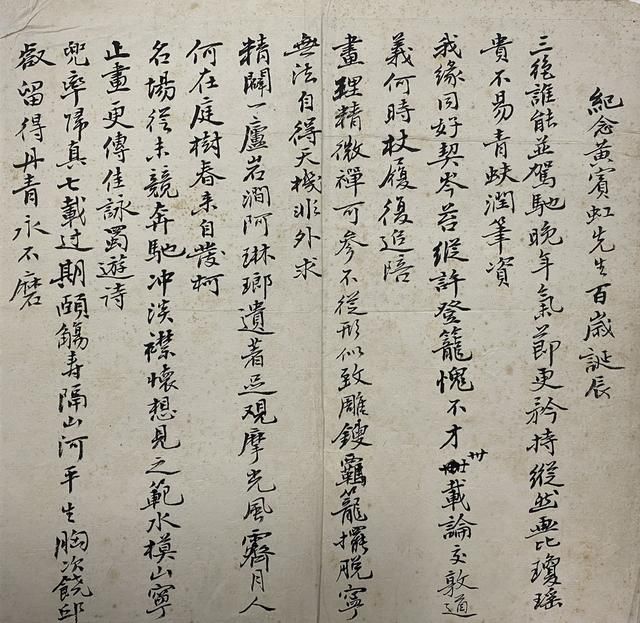 紀念黃賓虹先生百歲誕辰
三絕誰能並駕馳晚年氣節更矜持縱然無比瓊瑤
貴不易青蚨潤筆資
我緣同好契岑苔縱許登龍愧不才卅載論交敦道
義何時杖履復追陪
畫理精微禪可參不從形似致雕鎪羈籠擺脫寧
無法自得天機非外求
精闢一廬岩澗阿琳瑯遺著足觀摩光風霽月人
何在庭樹春來自發柯
名場從未競奔馳沖淡襟懷想見之範水模山寧
止畫更傳佳詠蜀遊詩
兜率歸真七載過期頤觴壽隔山河平生胸次饒邱
壑留得丹青永不磨